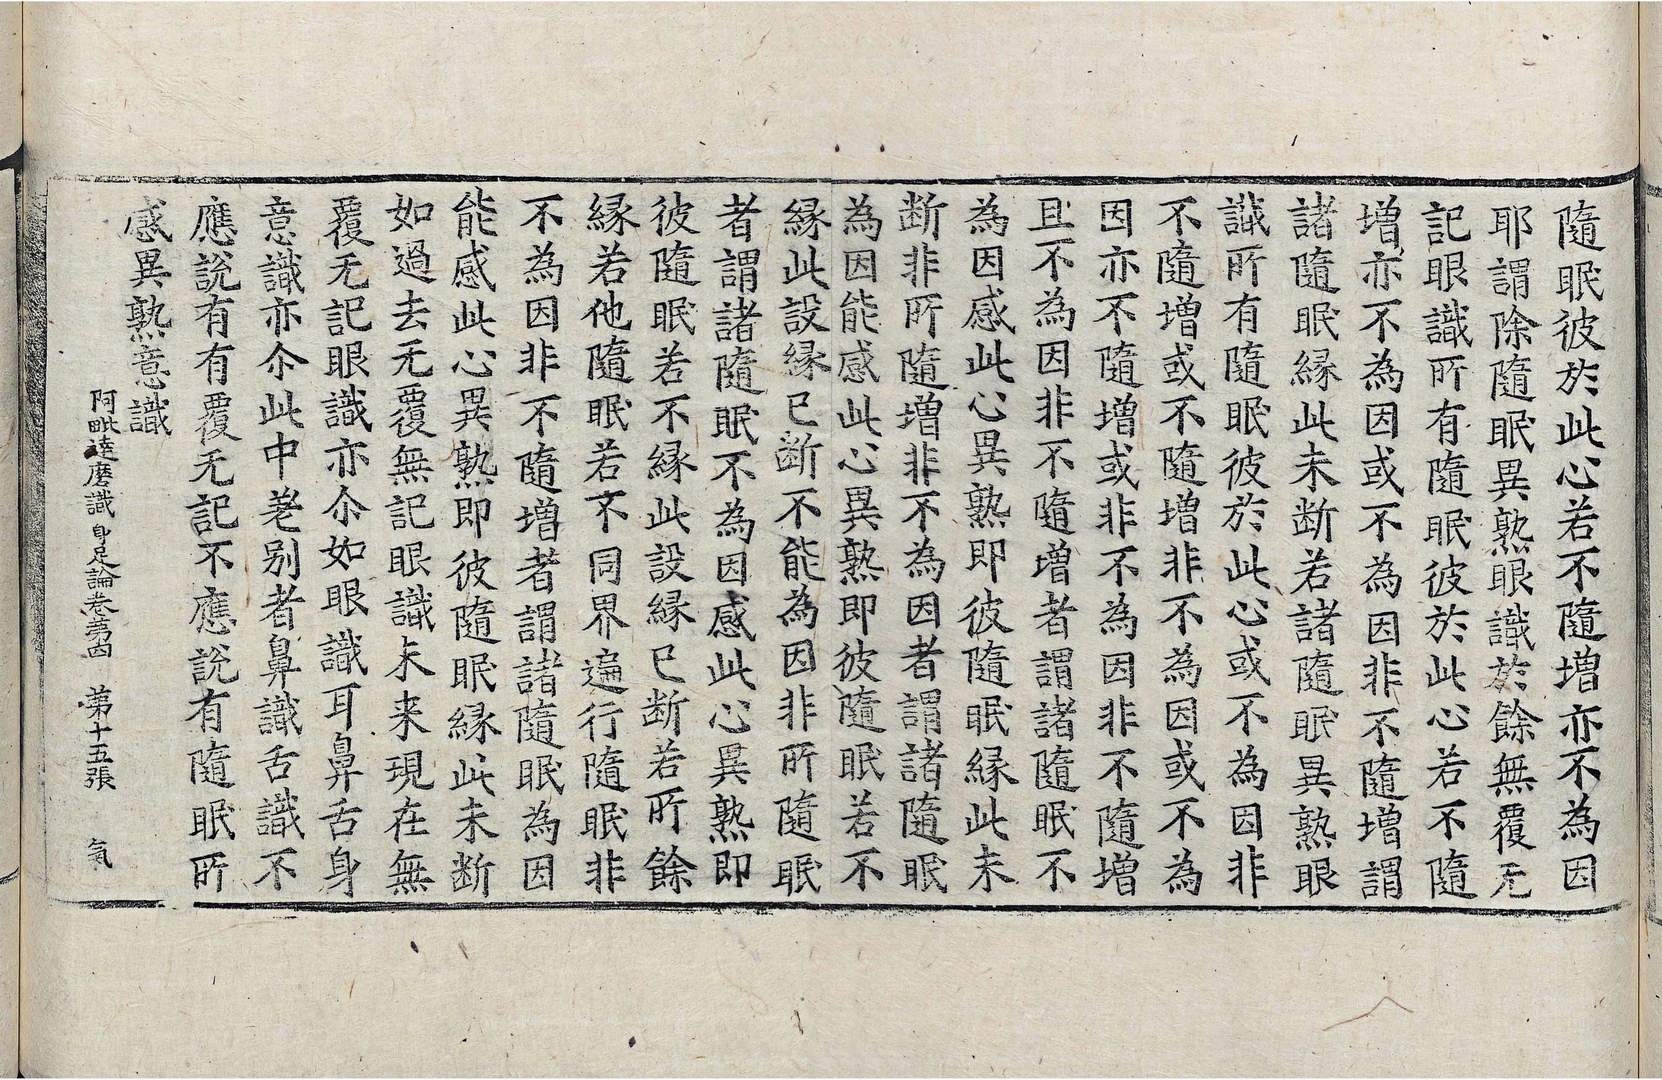 隨眠彼於此心若不隨增亦不為因
耶謂除隨眠異熟眼識於餘無覆无
記眼識所有隨眠彼於此心若不隨
增亦不為因或不為因非不隨增謂
諸隨眠縁此未断若諸隨眠異熟眼
識所有隨眠彼於此心或不為因非
不隨增或不隨增非不為因或不為
因亦不隨增或非不為因非不隨增
且不為因非不隨增者謂諸隨眠不
為因感此心異熟即彼隨眠縁此未
断非所隨增非不為因者謂諸隨眠
為因能感此心異熟即彼隨眠若不
縁此設縁已断不能為因非所隨眠
者謂諸隨眠不為因感此心異熟即
彼隨眠若不縁此設縁已断若所餘
縁若他隨眠若不同界遍行隨眠非
不為因非不隨增者謂諸隨眠為因
能感此心異熟即彼隨眠縁此未断
如過去无覆無記眼識未来現在無
覆无記眼識亦尒如眼識耳鼻舌身
意識亦尒此中差别者鼻識舌識不
應說有有覆无記不應說有隨眠所
感異熟意識
阿毗達磨識身足論卷第四　第十五張　氣